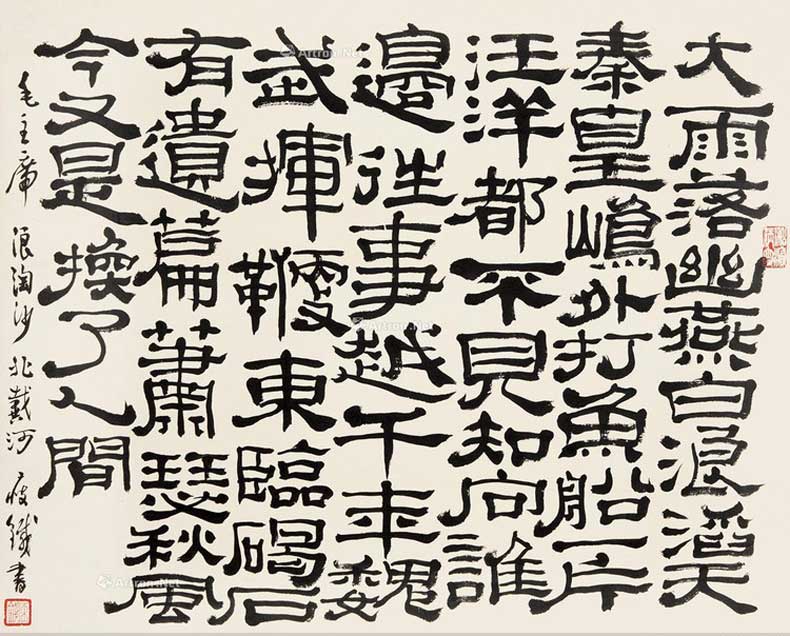 大雨落幽燕白浪滔天
秦皇嶋外打魚船一片
汪洋都不見知向誰
邊往事越千年魏
武揮鞭東臨碣石
有遺篇蕭瑟秋風
今又是換了人間
毛主席 浪淘沙 北戴河 鐵書
Artron.Net
Artron.Net
Artron.Net